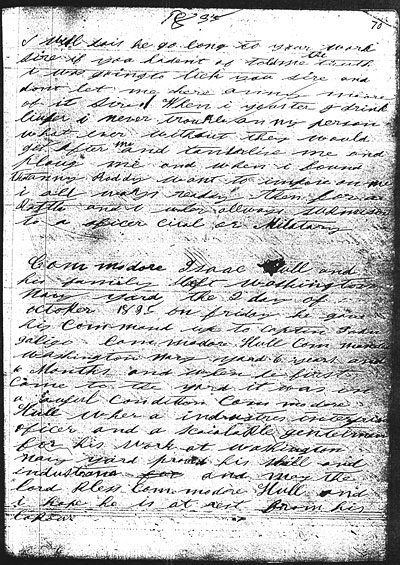 1835
70
I Hull sais he go long to your work
sire if you hadent of told me the truth
i was going to lick you sire and
dont let me here anny more
of it Sire When i youster drink
licker i never trouble anny person
what ever without they would
get after me and tanterlise me and
plaug me and when i found
anny Boddy want to impose on me
i all ways reddy then for a
Battle and i wher allways submisive
to a oficer civil or Military
Commodore Isaac Hull and
his family left Washington
Navy yard the 2 day of
october 1835 on friday he give
his Command up to Captin
Commodore Hull Com
Washington navy yard 6 years and
6 Months and when he first
Came to the yard it was in
a Condition Commodore
Hull wher a industres
oficer and a gentleman
for his work at Washington
Navy yard his skill and
and may the
lord bless Commodore Hull and
i hope he is at rest from his